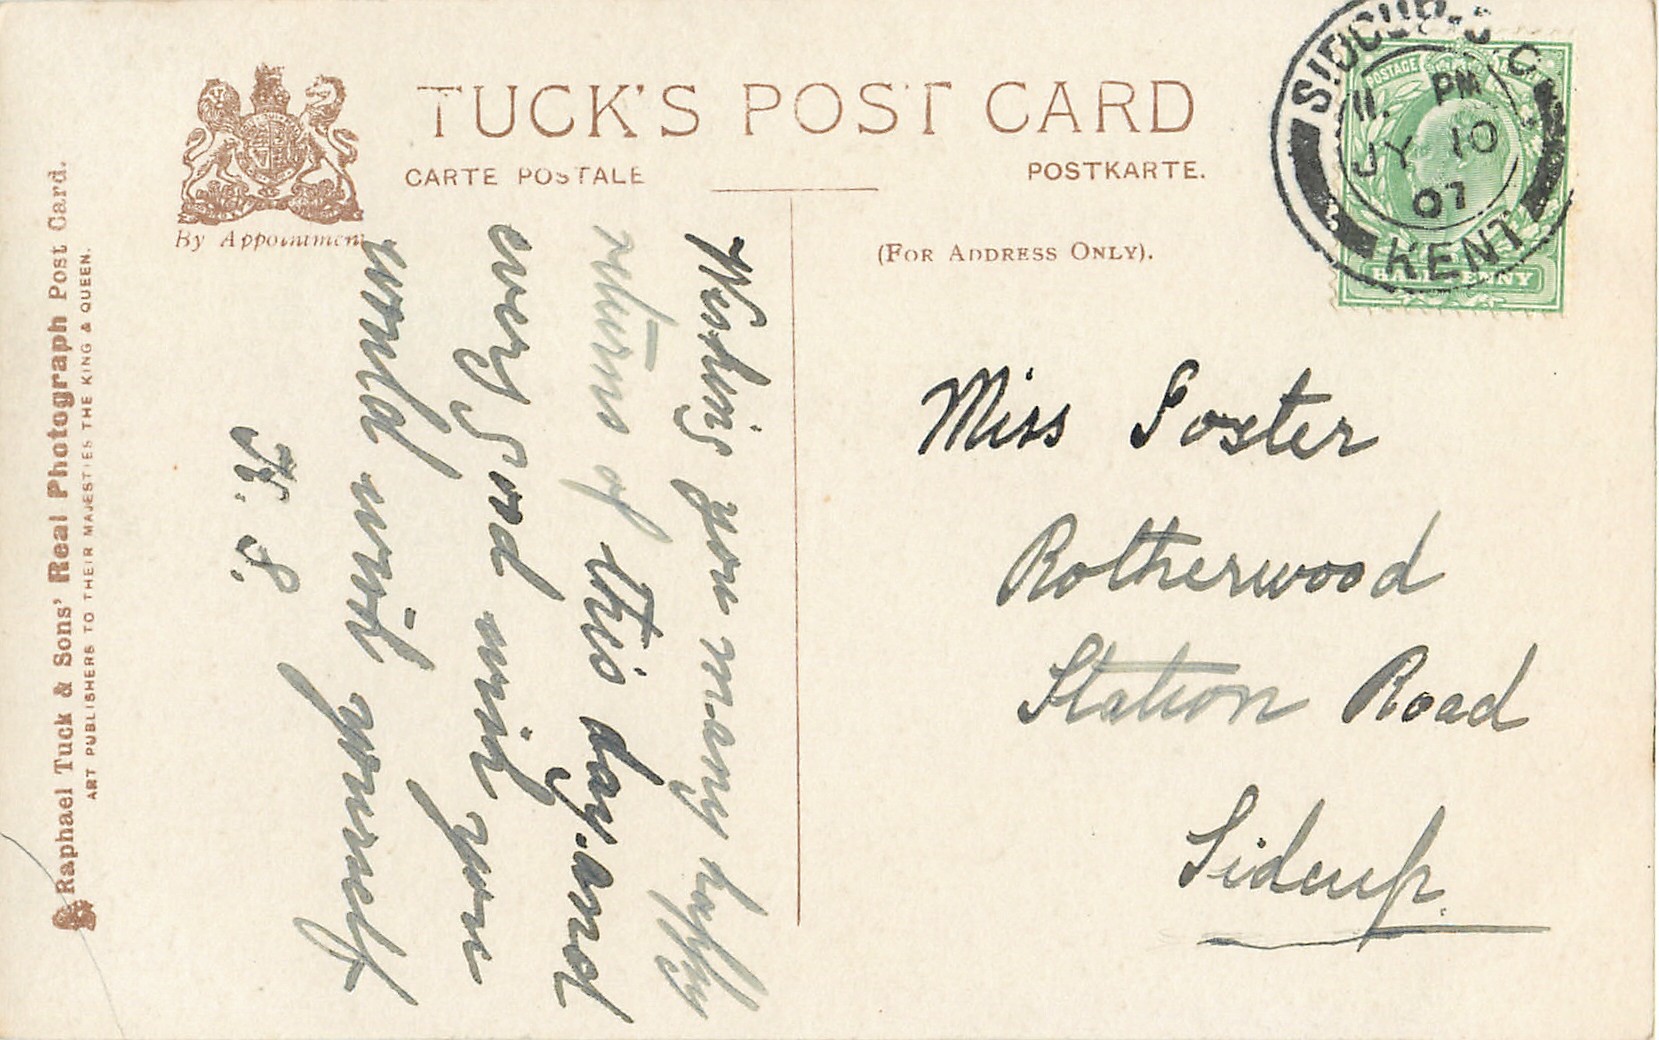 TUCK'S POST CARD
CARTE POSTALE
POSTKARTE.
By Appointment
(FOR ADDRESS ONLY).
Raphael Tuck & Sons' Real Photograph Post Card.
ART PUBLISHERS TO THEIR MAJESTIES THE KING & QUEEN.
POSTAGE
HALFPENNY
SIDCUP. S.O.
11. PM
JY 10
07
KENT
Wishing you many happy
returns of this day. and
every good wish you
would wish yourself
H. S.
Miss Foster
Rotherwood
Station Road
Sidcup.